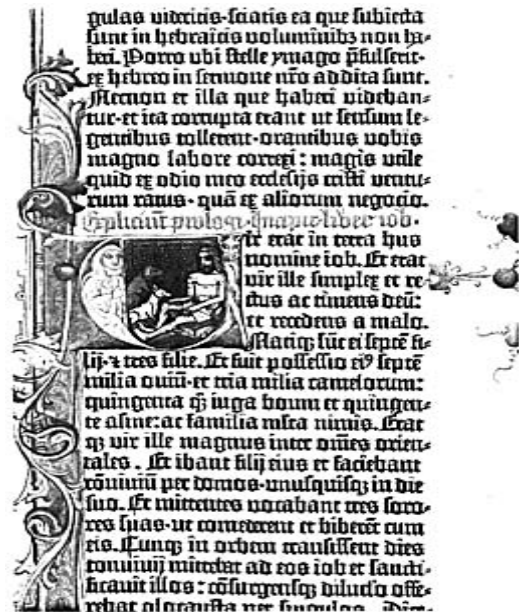 gulas videritis·sciatis ea que subiecta
sunt in hebraicis voluminibꝫ non ha-
beri. Porro ubi stelle ymago p̄fulserit·
ex hebreo in sermone nr̄o addita sunt.
Necnon et illa que haberi videban-
tur·et ita corrupta erant ut sensum le-
gentibus tollerent·orantibus vobis
magno labore correxi: magis utile
quid ex ocio meo ecclesijs cristi ventu-
rum ratus·quā ex aliorum negocio.
Expliciunt prologi· Incipit liber iob·
Vir erat in terra hus
nomine iob. Et erat
vir ille simplex et re-
ctus ac timens deū:
et recedens a malo.
Natiqꝫ sūt ei septē fi-
lij·⁊ tres filie. Et fuit possessio eiꝰ septē
milia ouiū·et tria milia camelorum:
quingenta qꝫ iuga boum et quingen-
te asine: ac familia mĺta nimis. Erat
qꝫ vir ille magnus inter om̄es orien-
tales. Et ibant filij eius et faciebant
cōuiuiū per domos·vnusquisqꝫ in die
suo. Et mittentes vocabant tres soro-
res suas·ut comederent et biberēt cum
eis. Cunqꝫ in orbem transissent dies
conuiuij mittebat ad eos iob et sancti-
ficauit illos: cōsurgensqꝫ diluculo offe-
rebat olocausta per singulos.